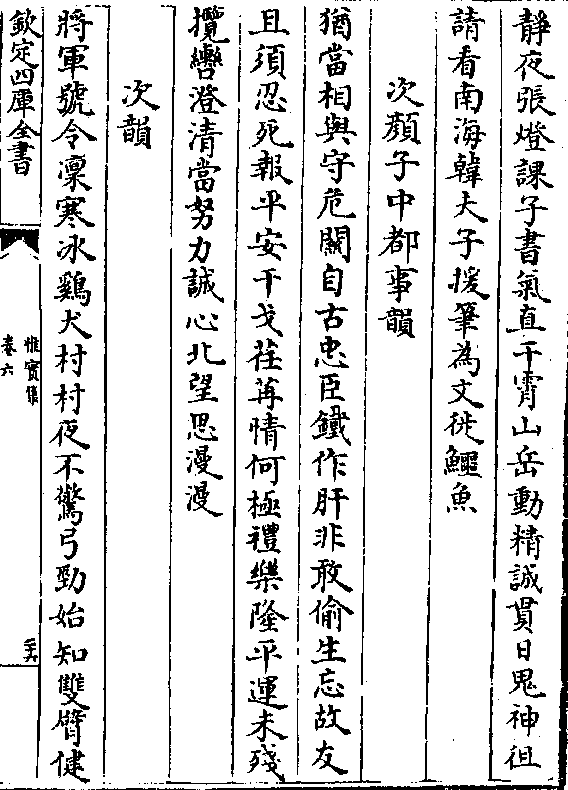 静夜張燈課子書氣直干霄山岳動精誠貫日鬼神徂
請看南海韓夫子援筆為文徙鱷魚
次顔子中都事韻
猶當相與守危闗自古忠臣鐵作肝非敢偷生忘故友
且須忍死報平安干戈荏苒情何極禮樂隆平運未殘
攬轡澄清當努力誠心北望思漫漫
次韻
將軍號令凛寒冰鷄犬村村夜不驚弓勁始知雙臂健
欽定四庫全書
惟實集
卷六